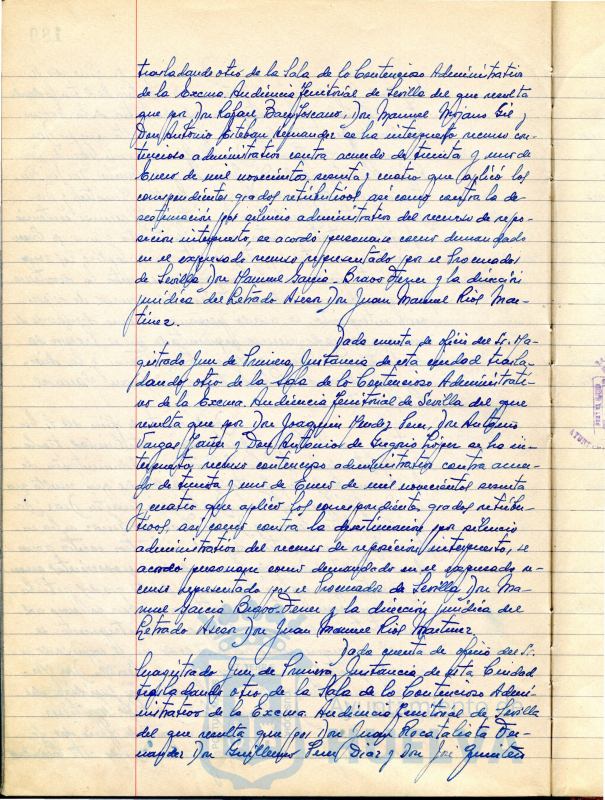 trasladando otro de la Sala de lo Contencioso Administrativo
de la Excma. Audiencia Territorial de Sevilla del que resulta
que por Don Rafael Toscano, Don Manuel Mojano Gil y
Don Antonio Esteban Hernandez se ha interpuesto recurso con-
tencioso administrativo contra acuerdo de treinta y uno de
Enero de mil novecientos sesenta y cuatro que aplicó los
correspondientes grados retributivos, así como contra la de-
sestimación por silencio administrativo del recurso de repo-
sición interpuesto, se acordó personarse como demandado
en el expresado recurso representados por el Procurador
de Sevilla Don Manuel Garcia-Bravo Ferrer y la dirección
jurídica del Letrado Asesor Don Juan Manuel Rios Mar-
tinez.
Dada cuenta de oficio del Sr. Ma-
gistrado Juez de Primera Instancia de esta ciudad trasla-
dando otro de la Sala de lo Contencioso Administrati-
vo de la Excma. Audiencia Territorial de Sevilla del que
resulta que por Don Joaquin Mendez Perez, Don Antonio
Vargas y Don Antonio de Gregorio López se ha in-
terpuesto recurso contencioso administrativo contra acuer-
do de treinta y uno de Enero de mil novecientos sesenta
y cuatro que aplicó los correspondientes grados retribu-
tivos, así como contra la desestimación por silencio
administrativo del recurso de reposición interpuesto, se
acordó personarse como demandado en el expresado re-
curso representado por el Procurador de Sevilla Don Ma-
nuel Garcia Bravo Ferrer y la dirección jurídica del
Letrado Asesor Don Juan Manuel Rios Martinez.
Dada cuenta de oficio del Sr.
Magistrado Juez de Primera Instancia de esta Ciudad
trasladando otro de la Sala de lo Contencioso Admi-
nistrativo de la Excma. Audiencia Territorial de Sevilla
del que resulta que por Don Juan Rocatalista Fer-
nandez Don Guillermo Perez Diaz y Don José Quintero